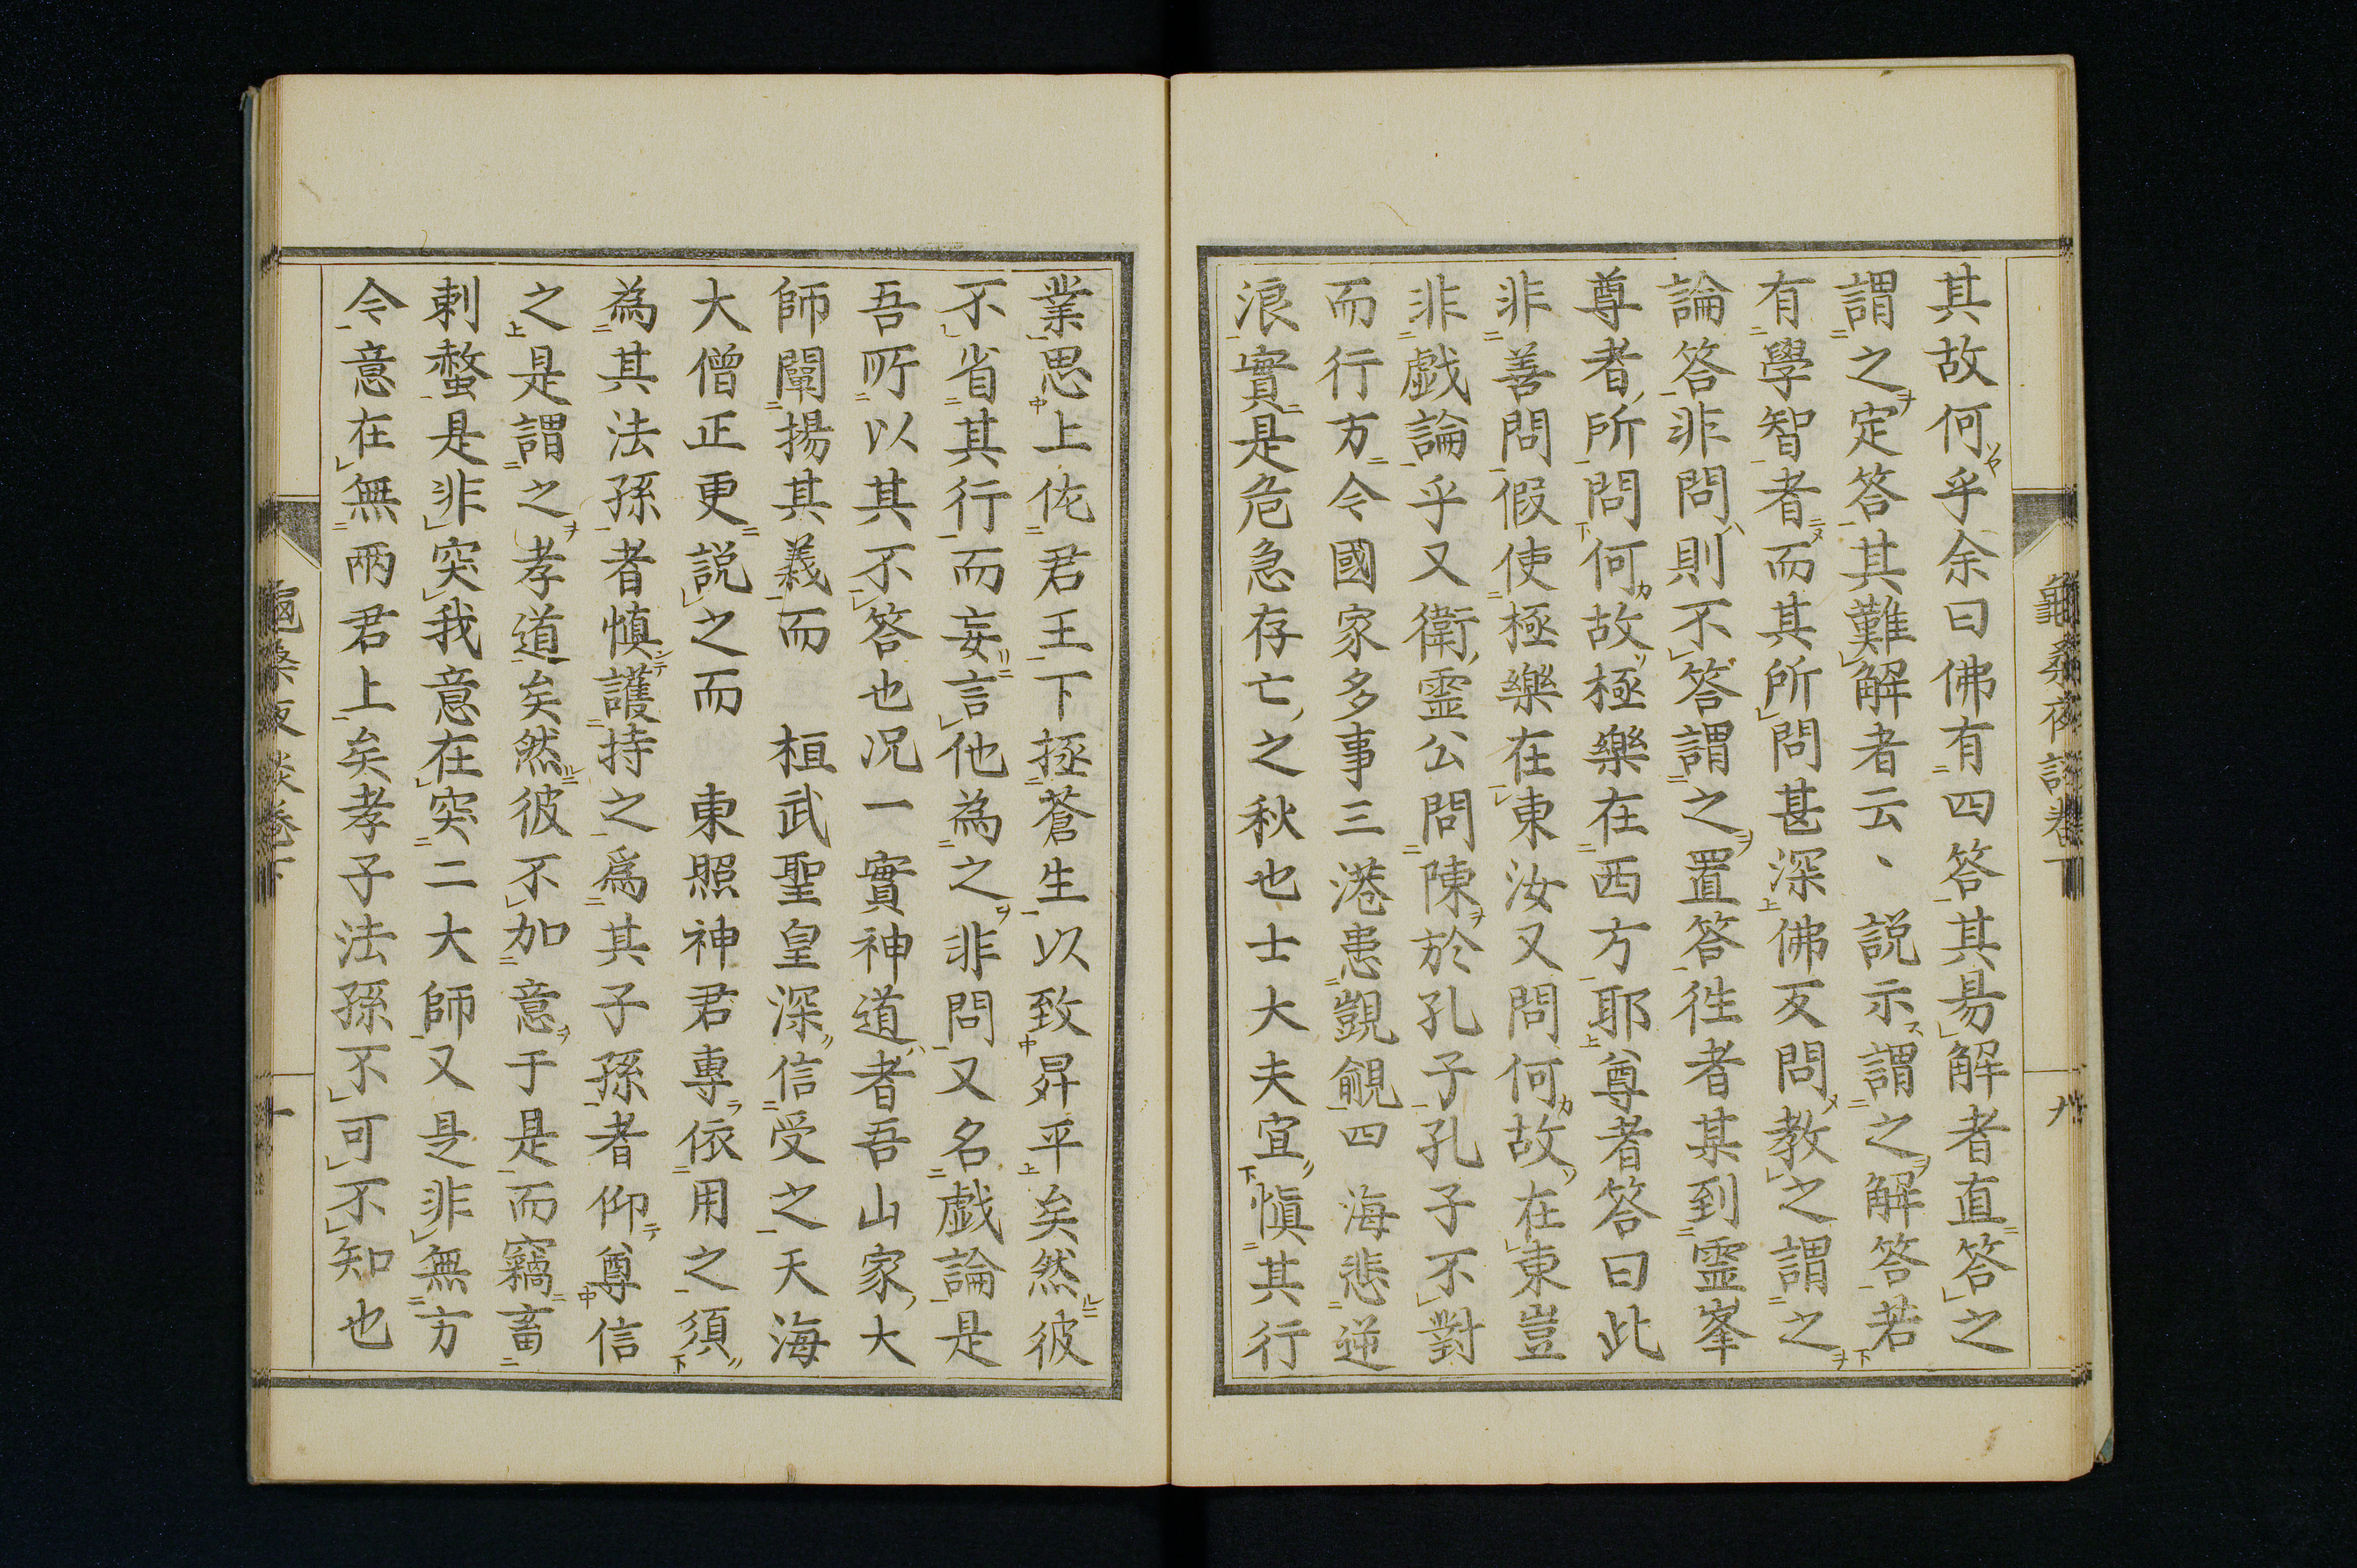 其故何乎余曰佛有四答其易解者直答之
謂之定答其難解者云、說示謂之解答若
有學智者而其所問甚深佛反問教之謂之
論答非問則不答謂之置答徃者某到霊峯
尊者所問何故極樂在西方耶尊者答曰此
非善問假使極樂在東汝又問何故在東豈
非戯論乎又衛霊公問陳於孔子孔子不對
而行方今國家多事三港患覬覦四海悲逆
浪實是危急存亡之秋也士大夫宜慎其行
業思上佐君王下拯蒼生以致昇平矣然彼
不省其行而妄言他為之非問又名戯論是
吾所以其不答也况一實神道者吾山家大
師闡揚其義而 桓武聖皇深信受之天海
大僧正更説之而 東照神君專依用之須
為其法孫者慎護持之爲其子孫者仰尊信
之是謂之孝道矣然彼不加意于是而竊畜
刺螫是非突我意在突二大師又是非無方
今意在無兩君上矣孝子法孫不可不知也